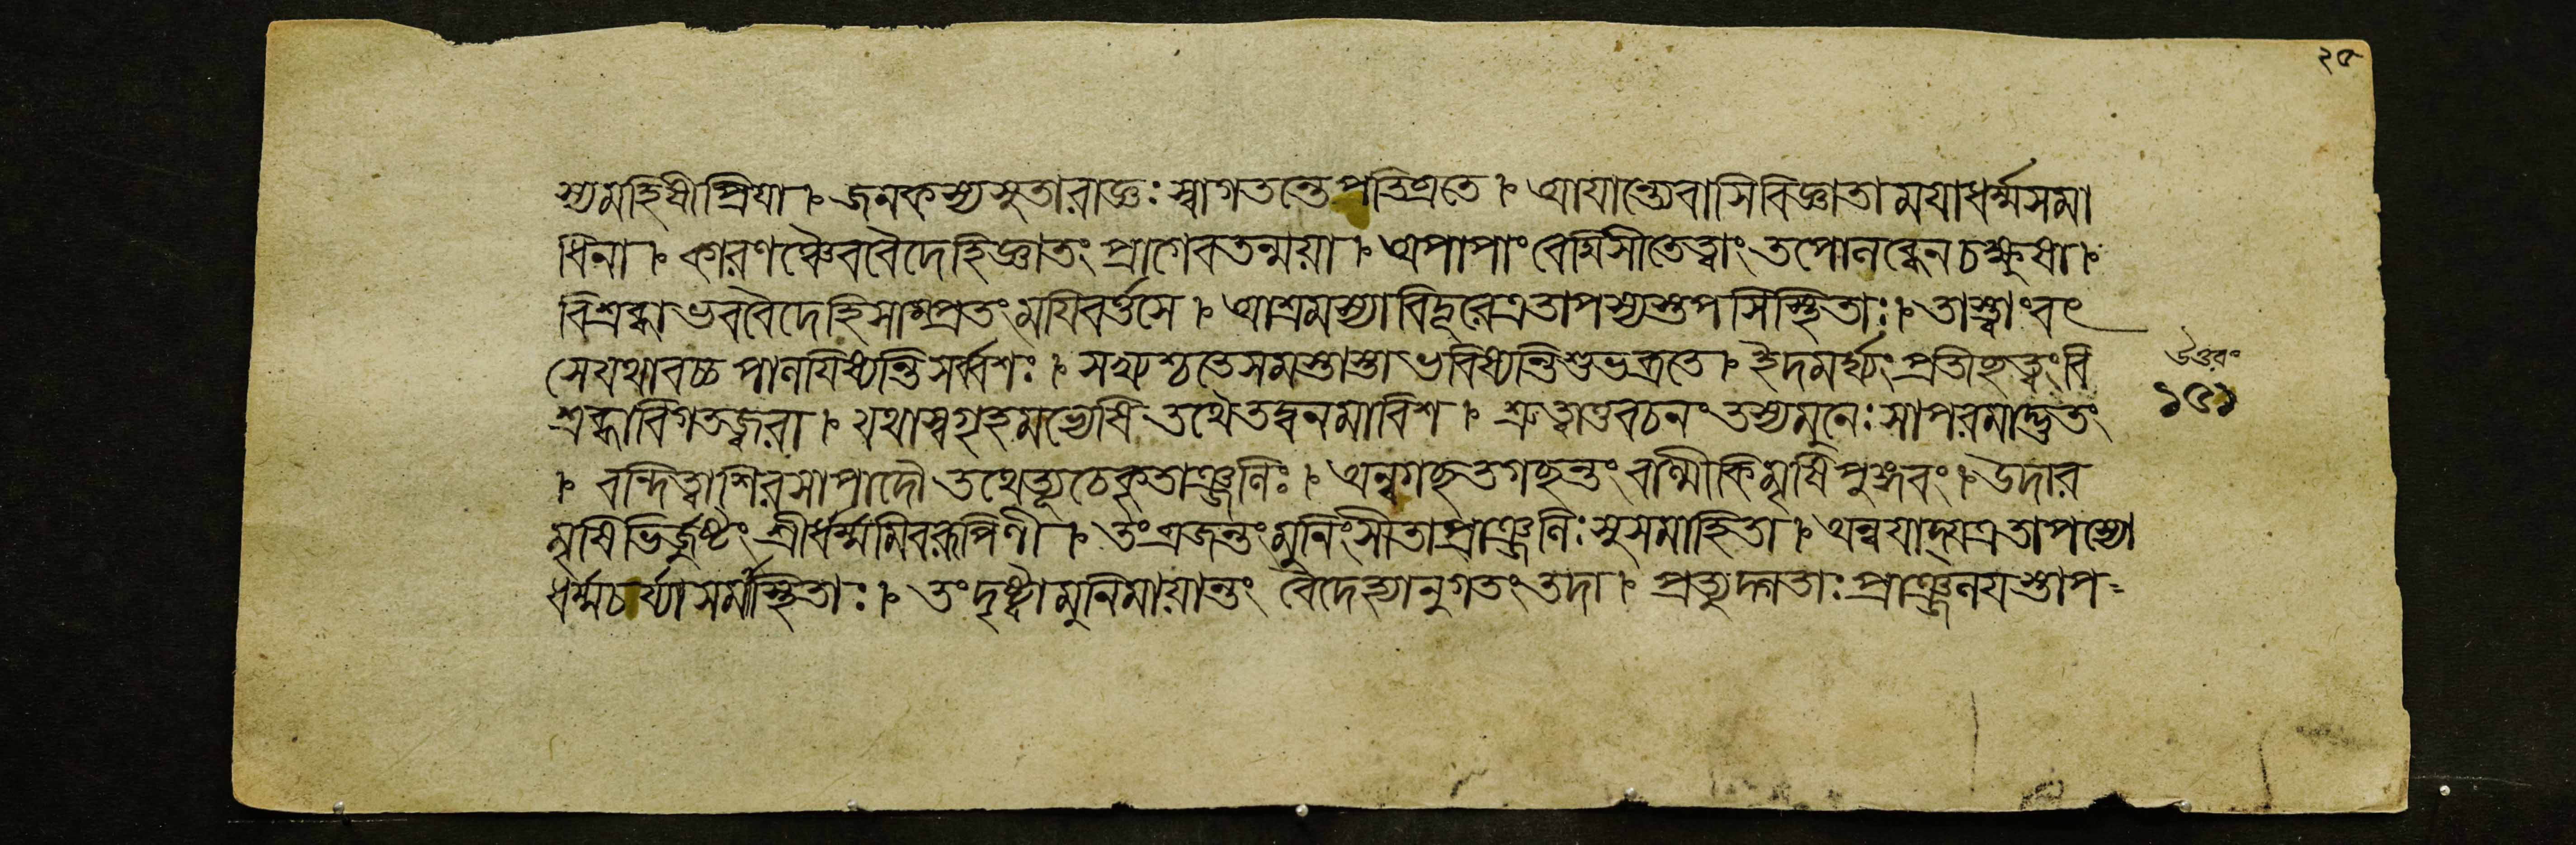 ২৫
স্যমহিষীপ্রিয়া । জনকস্যসুতারাজ্ঞঃস্বাগতন্তেপতিব্রতে । আযান্ত্যেবাসিবিজ্ঞাতাময়াধর্ম্মসমা
ধিনা । কারণঞ্চৈববৈদেহিজ্ঞাতংপ্রাগেবতন্ময়া । অপাপাংবেদ্মিসীতেত্বাংতপোলব্ধেনচক্ষুষা ।
বিশ্রব্ধাভববৈদেহিসাম্প্রতংময়িবর্ত্তসে । আশ্রমস্যাবিদূরেব্রতাপস্যস্তপসিস্থিতাঃ । তাস্ত্বাংবৎ
সেযথাবচ্চপালয়িষ্যন্তিসর্ব্বশঃ । সখ্যশ্চতেসমস্তাস্তাভবিষ্যন্তিশুভব্রতে । ইদমর্ঘ্যংপ্রতীহত্বংবি
শ্রব্ধাবিগতজ্বরা । যথাস্বগৃহমভ্যেষিতথৈতদ্বনমাবিশ । শ্রুত্বাতুবচনংতস্যমুনেঃসাপরমাদ্ভুতং
। বন্দিত্বাশিরসাপাদৌতথেত্যূচেকৃতাঞ্জলিঃ । অন্বগচ্ছতগচ্ছন্তংবাল্মীকিমৃষিপুঙ্গবং । উদার
মৃষিভির্জুষ্টংশ্রীর্ধর্ম্মমিবরূপিণী । তংব্রজন্তংমুনিংসীতাপ্রাঞ্জলিঃসুসমাহিতা । অন্বয়াদ্যত্রতাপস্যো
ধর্ম্মচর্য্যাসমাস্থিতাঃ । তংদৃষ্ট্বামুনিমায়ান্তং বৈদেহ্যানুগতংতদা । প্রত্যুদ্গতাঃপ্রাঞ্জলয়স্তাপ-
উত্তরং
১৫১